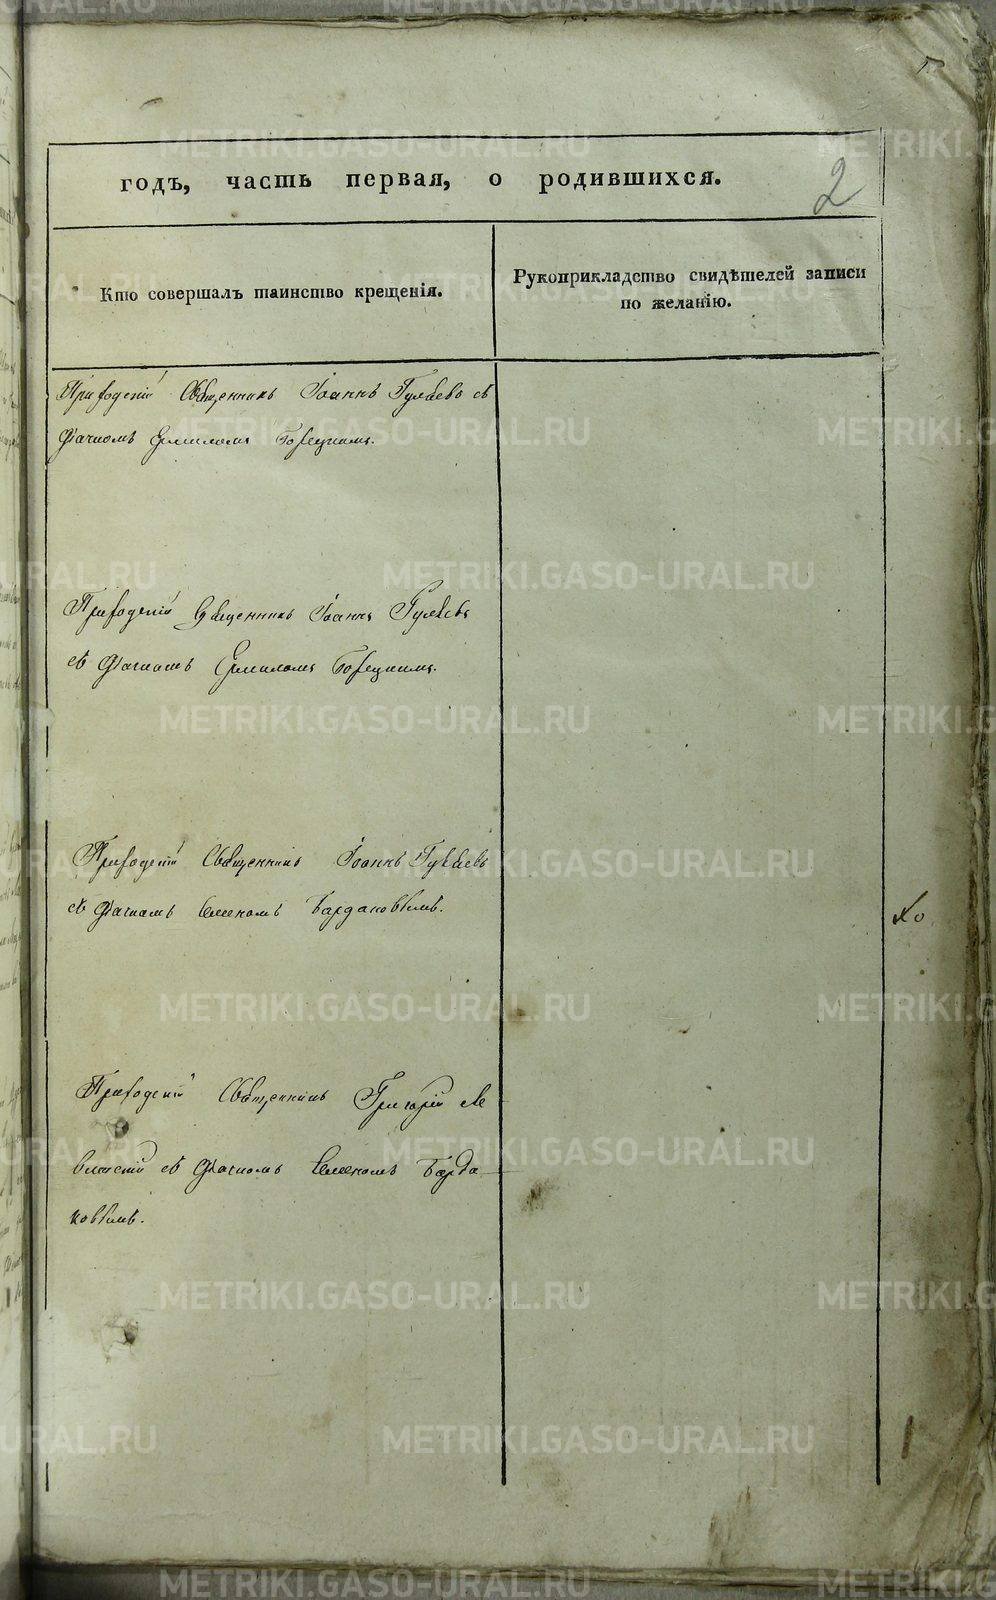 годъ, часть первая, о родившихся.
2
Кто совершалъ таинство крещенія.
Рукоприкладство свидѣтелей записи
по желанію.
Приходскій Священникъ Іоаннъ Гуляевъ съ
Дьячкомъ Ермиломъ Борецкимъ.
Приходскій Священникъ Іоаннъ Гуляевъ
съ Дьячкомъ Ермиломъ Борецкимъ.
Приходскій Священникъ Іоаннъ Гуляевъ
съ Дьячкомъ Семеномъ Бардаковымъ.
Приходскій Священникъ Григорій
съ Дьячкомъ Семеномъ Барда
ковымъ.
METRIKI.GASO-URAL.RU